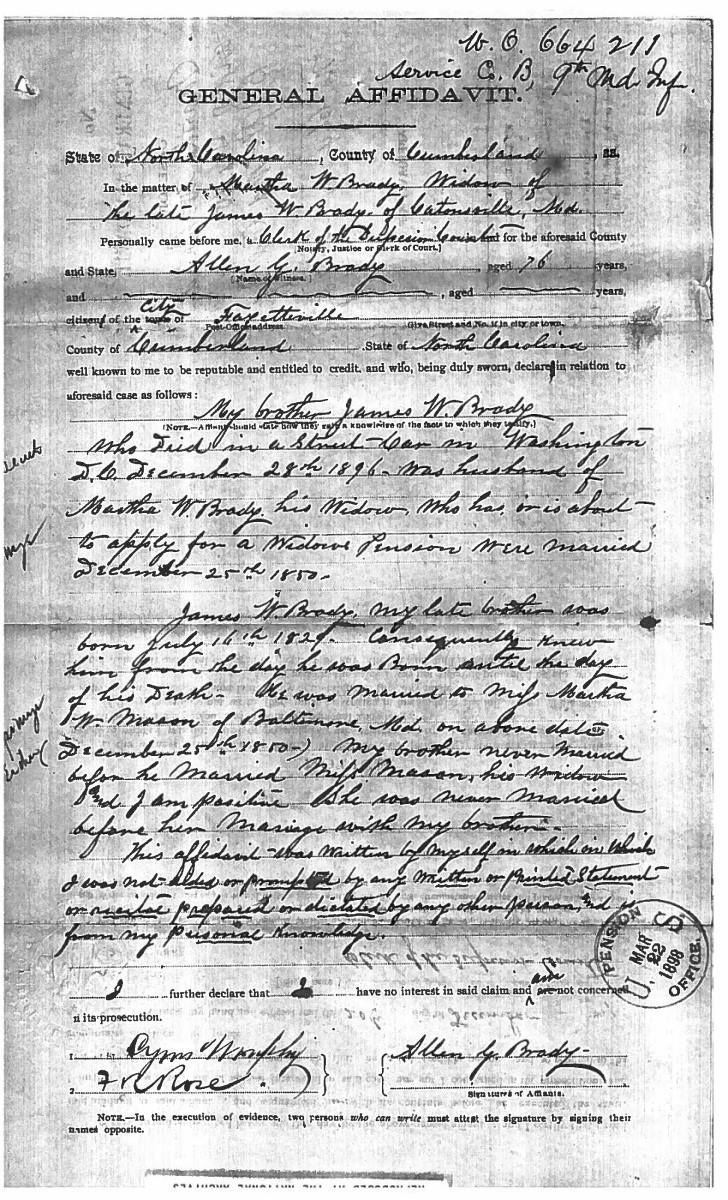 W. O. 664 211
Service Co. B, 9th Md. Inf.
GENERAL AFFIDAVIT.
State of North Carolina, County of Cumberland, ss.
In the matter of Martha W Brady, Widow of
the late James W Brady, of Catonsville, Md.
Personally came before me, a Clerk of the Superior Court for the aforesaid County
[Notary, Justice or Clerk of Court.]
and State, Allen G. Brady, aged 76 years,
[Name of Witness.]
and , aged years,
City
citizen of the town of Fayetteville
Post-Office address. Give Street and No. if in city or town.
County of Cumberland State of North Carolina
well known to me to be reputable and entitled to credit. and who, being duly sworn, declare in relation to
aforesaid case as follows:
My brother James W. Brady
(NOTE.—Affiant should state how they gain a knowledge of the facts to which they testify.)
who Died in a Street-Car in Washington
D.C. December 28th 1896- was husband of
Martha W. Brady, his Widow, who has, or is about
to apply for a Widows Pension were married
December 25th 1850-
James W. Brady, my late brother was
born July 16th Consequently knew
him from the day he was Born until the day
of his Death- He was married to Miss Martha
W. Mason of Baltimore, Md. on above date
December 25th 1850-) My brother never Married
before he Married Miss Mason, his Widow
And I am positive She was never Married
before her Mariage with my brother-
This affidavit was written by myself in which in which
I was not aided or prompted by any Written or Printed Statement
or recital prepared or dictated by any other person, And is
from my Personal Knowledge.
PENSION OFFICE U. S. MAR 22 1898
am
I further declare that I have no interest in said claim and are not concerned
in its prosecution.
1 Murphy Allen G. Brady-
2 Rose
Signatures of Affiants.
NOTE.—In the execution of evidence, two persons who can write must attest the signature by signing their
names opposite.